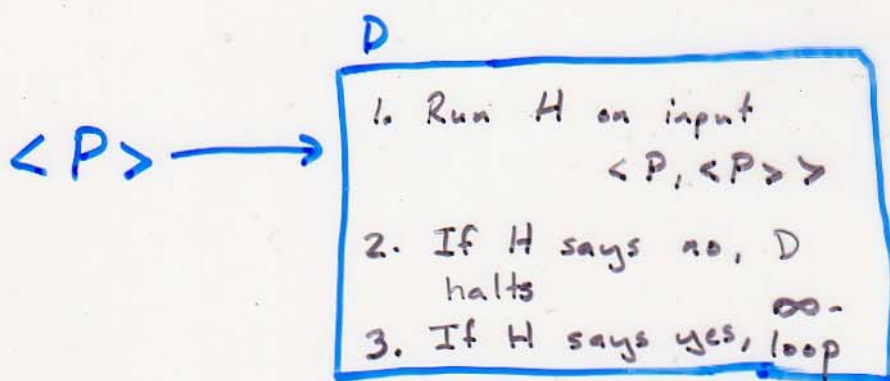 D
<P>
1. Run H on input
<P, <P>>
2. If H says no, D
halts
3. If H says yes, ∞-
loop